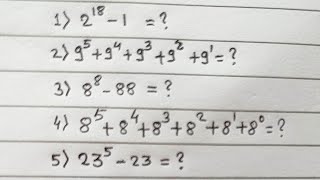 1) 2¹⁸ - 1 = ?
2) 9⁵ + 9⁴ + 9³ + 9² + 9¹ = ?
3) 8⁸ - 88 = ?
4) 8⁵ + 8⁴ + 8³ + 8² + 8¹ + 8⁰ = ?
5) 23⁵ - 23 = ?